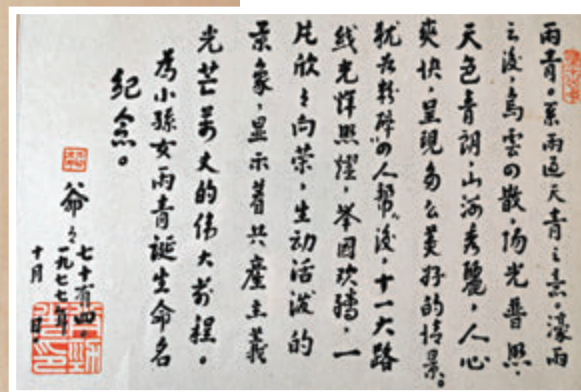 雨青。系雨過天青之意，濠雨
之後，烏雲四散，陽光普照，
天色青朗，山河秀麗，人心
爽快，呈現多么美好的情景。
犹如粉碎"四人帮"後，十一大路
线光輝照耀，举国欢騰，一
片欣々向荣，生动活泼的
景象，显示着共產主義
光芒萬丈的伟大前程。
為小孫女雨青誕生命名
纪念。
爺々
七十有四。
一九七七年
十月 日。